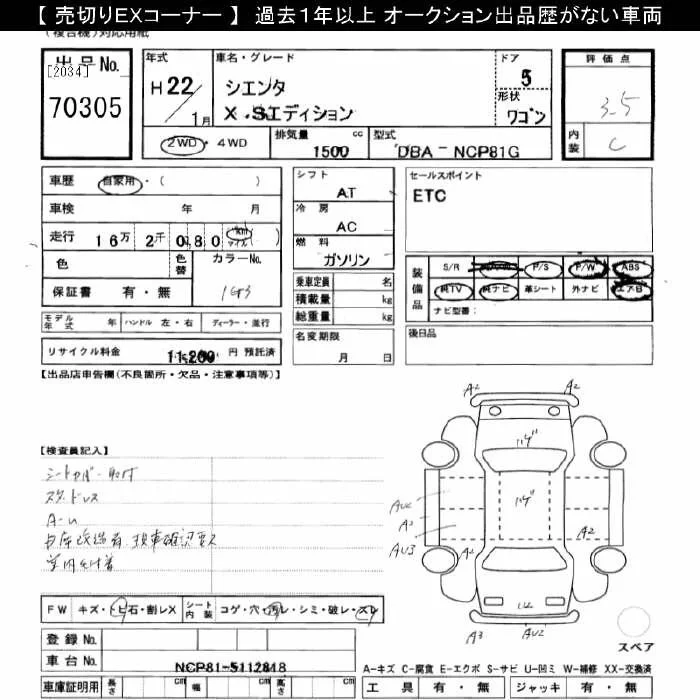 【 売切りEXコーナー 】 過去1年以上 オークション出品歴がない車両
(複合機)対応用紙
出品No.
[2034]
70305
年式
H 22/1月
車名・グレード
シエンタ
X.Sエディション
ドア
5
形状
ワゴン
2WD・4WD
排気量
1500 cc
型式
DBA - NCP81G
評価点
3.5
内装
C
車歴 自家用・( )
車検 年 月
走行 16万 2千 080 km マイル ( )
色
色替
カラーNo.
1G3
保証書 有・無
シフト
AT
冷房
AC
燃料
ガソリン
乗車定員 名
積載量 kg
総重量 kg
名変期限
月 日
セールスポイント
ETC
装備品
S/R P/S P/W ABS
純TV 純ナビ 革シート 外ナビ エアB
ナビ型番:
後日品
モデル年式 年 ハンドル 左・右 ディーラー・並行
リサイクル料金 11,260 円 預託済
【出品店申告欄(不良箇所・欠品・注意事項等)】
【検査員記入】
シートカバー取付
スタッドレス
A-U
現車確認要ス
A2 A2
A2
A2
A2
AU3
A3 AU2
FW キズ・ヒビ・石・割レX シート内装 コゲ・穴・汚レ・シミ・破レ・スレ
登録No.
車台No. NCP81-5112818
車庫証明用 長さ cm 幅 cm 高さ cm
スペア
A-キズ C-腐食 E-エクボ S-サビ U-凹ミ W-補修 XX-交換済
工具 有・無 ジャッキ 有・無